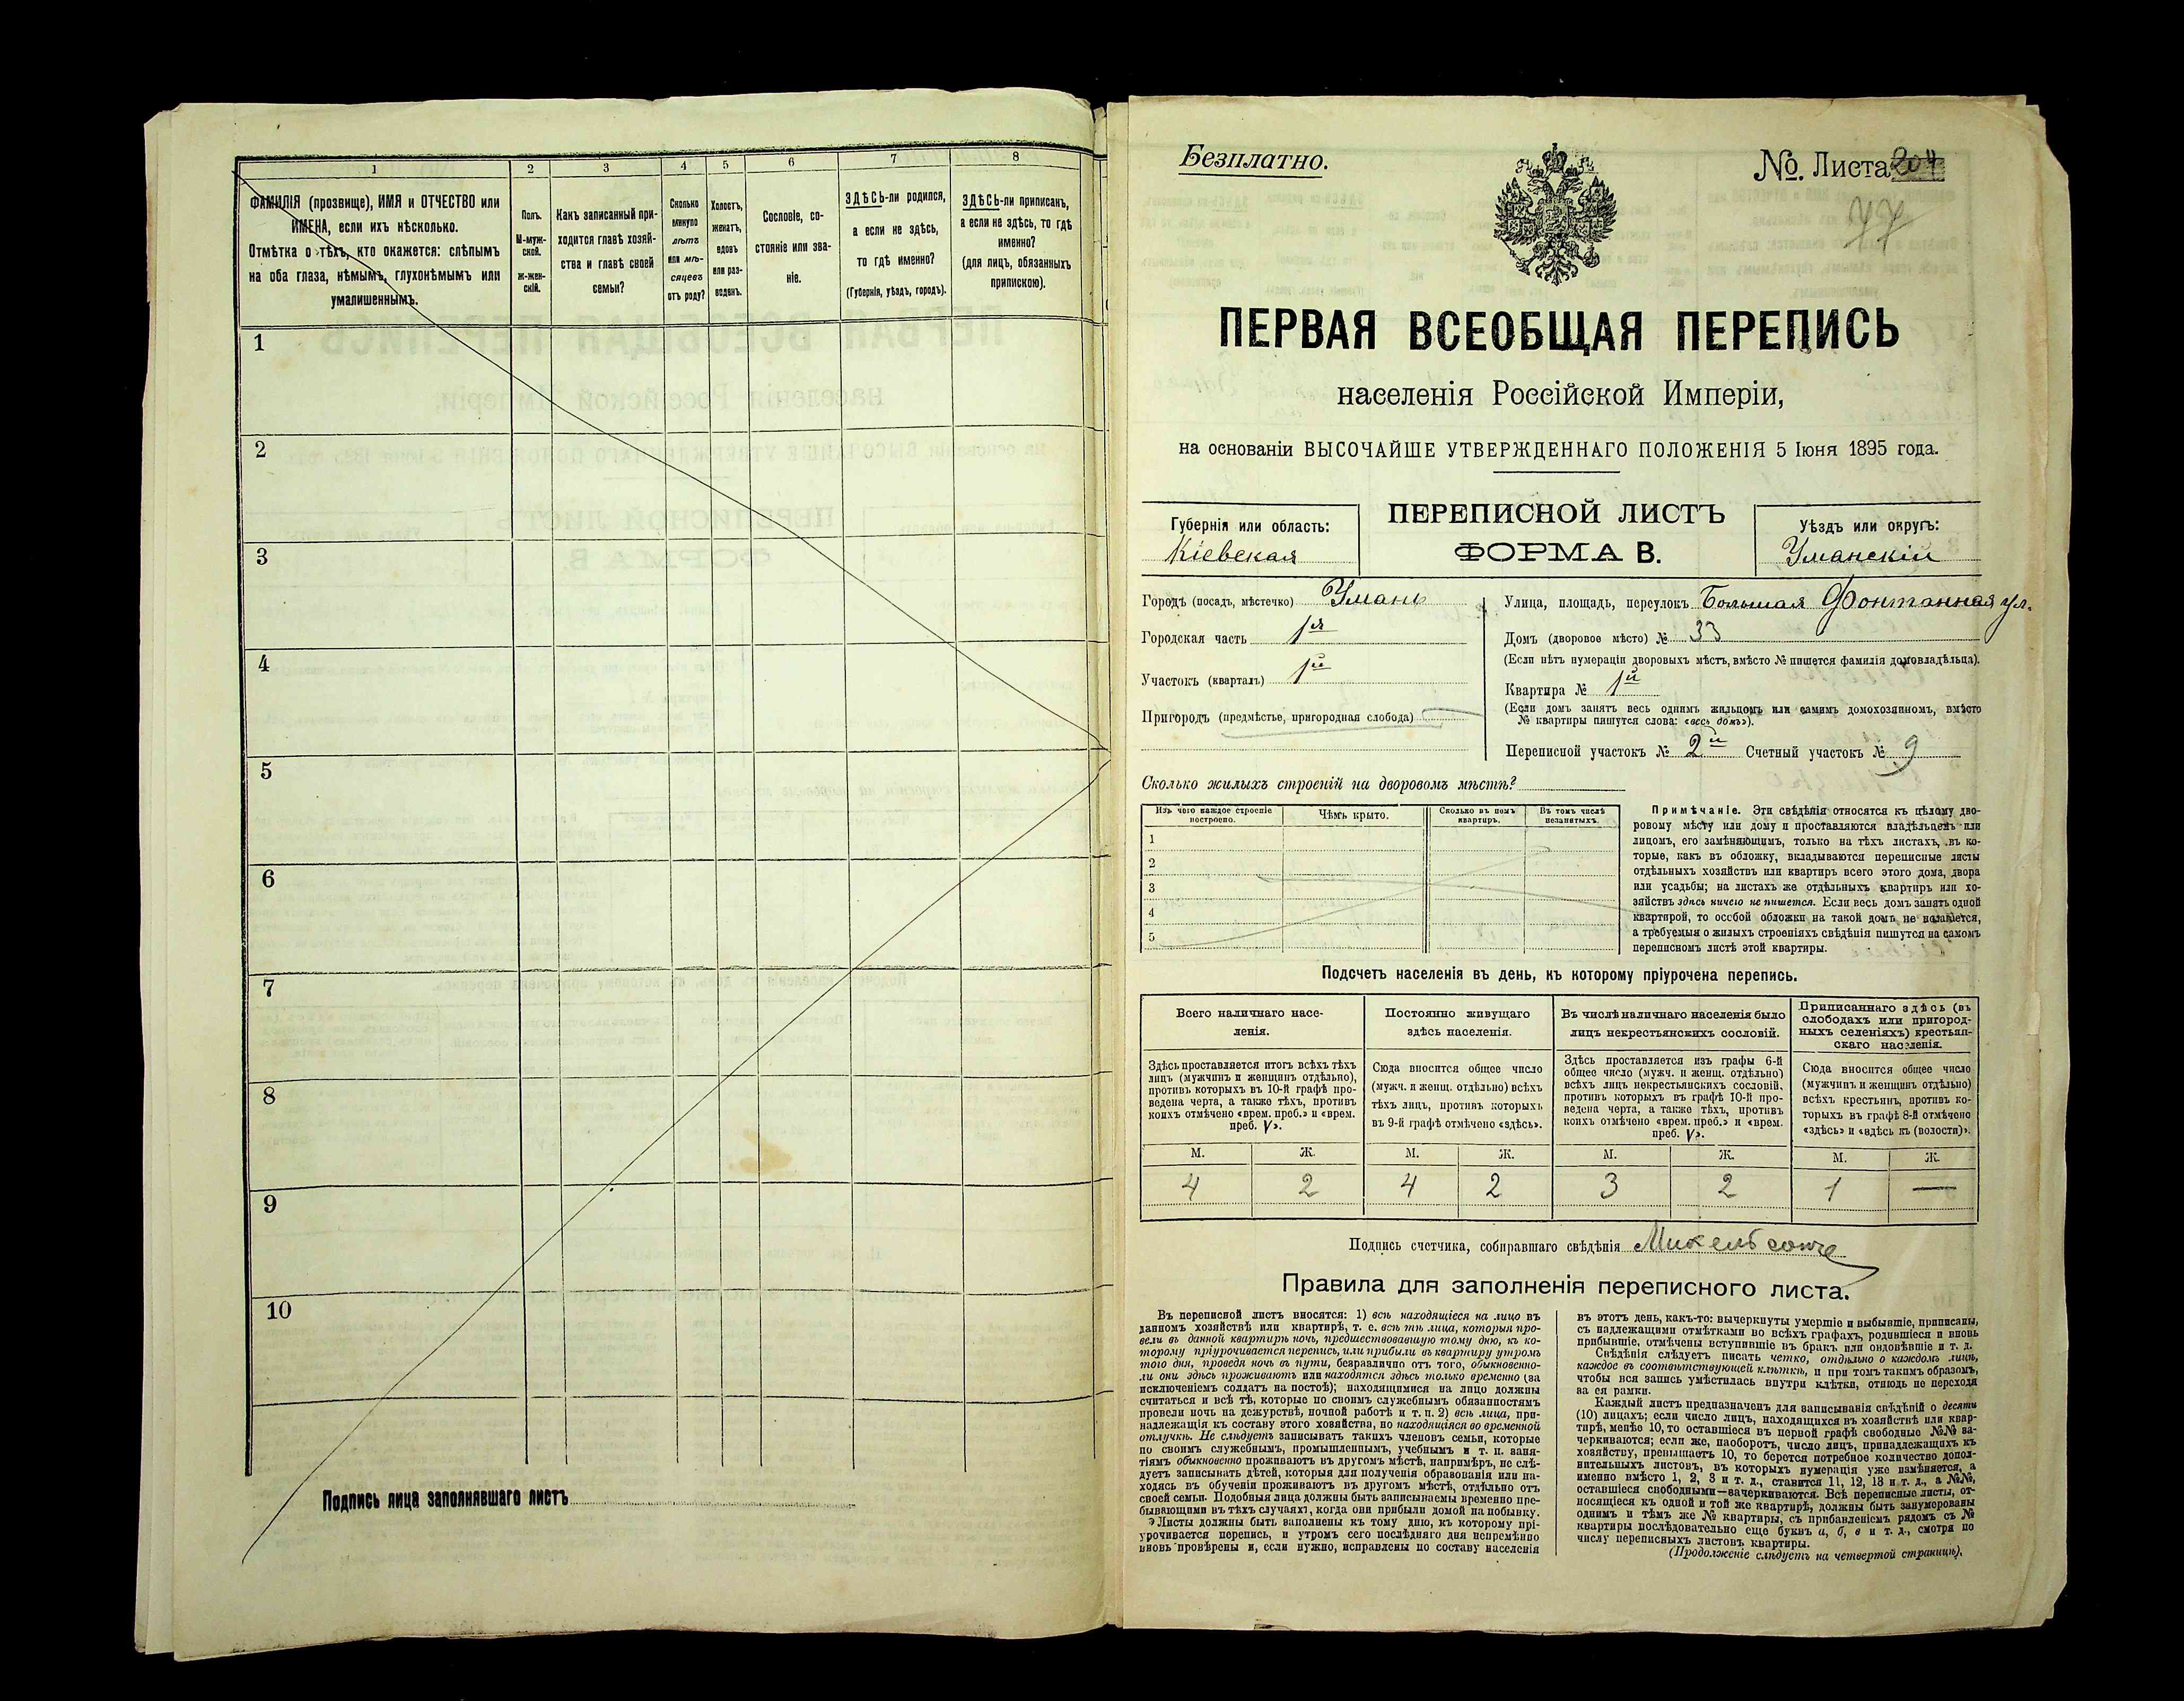 1
2
3
4
5
6
7
8
ФАМИЛІЯ (прозвище), ИМЯ и ОТЧЕСТВО или
ИМЕНА, если ихъ нѣсколько.
Отмѣтка о тѣхъ, кто окажется: слѣпымъ
на оба глаза, нѣмымъ, глухонѣмымъ или
умалишеннымъ.
Полъ.
М-муж-
ской.
Ж-жен-
скій.
Какъ записанный при-
ходится главѣ хозяй-
ства и главѣ своей
семьи?
Сколько
минуло
лѣтъ
или мѣ-
сяцевъ
отъ роду?
Холостъ,
женатъ,
вдовъ
или раз-
веденъ.
Сословіе, со-
стояніе или зва-
ніе.
ЗДѢСЬ-ли родился,
а если не здѣсь,
то гдѣ именно?
(Губернія, уѣздъ, городъ).
ЗДѢСЬ-ли приписанъ,
а если не здѣсь, то гдѣ
именно?
(для лицъ, обязанныхъ
припискою).
1
2
3
4
5
6
7
8
9
10
Подпись лица заполнявшаго листъ
Безплатно.
№. Листа 204
77
ПЕРВАЯ ВСЕОБЩАЯ ПЕРЕПИСЬ
населенія Россійской Имперіи,
на основаніи ВЫСОЧАЙШЕ УТВЕРЖДЕННАГО ПОЛОЖЕНІЯ 5 Іюня 1895 года.
Губернія или область:
Кіевская
ПЕРЕПИСНОЙ ЛИСТЪ
ФОРМА В.
Уѣздъ или округъ:
Уманскій
Городъ (посадъ, мѣстечко) Умань
Городская часть 1я
Участокъ (кварталъ) 1й
Пригородъ (предмѣстье, пригородная слобода)
Улица, площадь, переулокъ Большая Фонтанная ул.
Домъ (дворовое мѣсто) № 33
(Если нѣтъ нумераціи дворовыхъ мѣстъ, вмѣсто № пишется фамилія домовладѣльца).
Квартира № 1й
(Если домъ занятъ весь однимъ жильцомъ или самимъ домохозяиномъ, вмѣсто
№ квартиры пишутся слова: «весь домъ»).
Переписной участокъ № 2й Счетный участокъ № 9
Сколько жилыхъ строеній на дворовомъ мѣстѣ?
Изъ чего каждое строеніе
построено.
Чѣмъ крыто.
Сколько въ немъ
квартиръ.
Въ томъ числѣ
незанятыхъ.
1
2
3
4
5
Примѣчаніе. Эти свѣдѣнія относятся къ цѣлому дво-
ровому мѣсту или дому и проставляются владѣльцемъ или
лицомъ, его замѣняющимъ, только на тѣхъ листахъ, въ ко-
торые, какъ въ обложку, вкладываются переписные листы
отдѣльныхъ хозяйствъ или квартиръ всего этого дома, двора
или усадьбы; на листахъ же отдѣльныхъ квартиръ или хо-
зяйствъ здѣсь ничего не пишется. Если весь домъ занятъ одной
квартирой, то особой обложки на такой домъ не полагается,
а требуемыя о жилыхъ строеніяхъ свѣдѣнія пишутся на самомъ
переписномъ листѣ этой квартиры.
Подсчетъ населенія въ день, къ которому пріурочена перепись.
Всего наличнаго насе-
ленія.
Здѣсь проставляется итогъ всѣхъ тѣхъ
лицъ (мужчинъ и женщинъ отдѣльно),
противъ которыхъ въ 10-й графѣ про-
ведена черта, а также тѣхъ, противъ
коихъ отмѣчено «врем. преб.» и «врем.
преб. V».
Постоянно живущаго
здѣсь населенія.
Сюда вносится общее число
(мужч. и женщ. отдѣльно) всѣхъ
тѣхъ лицъ, противъ которыхъ
въ 9-й графѣ отмѣчено «здѣсь».
Въ числѣ наличнаго населенія было
лицъ некрестьянскихъ сословій.
Здѣсь проставляется изъ графы 6-й
общее число (мужч. и женщ. отдѣльно)
всѣхъ лицъ некрестьянскихъ сословій,
противъ которыхъ въ графѣ 10-й про-
ведена черта, а также тѣхъ, противъ
коихъ отмѣчено «врем. преб.» и «врем.
преб. V».
Приписаннаго здѣсь (въ
слободахъ или пригород-
ныхъ селеніяхъ) крестьян-
скаго населенія.
Сюда вносится общее число
(мужчинъ и женщинъ отдѣльно)
всѣхъ крестьянъ, противъ ко-
торыхъ въ графѣ 8-й отмѣчено
«здѣсь» и «здѣсь къ (волости)».
М. Ж. М. Ж. М. Ж. М. Ж.
4 2 4 2 3 2 1 —
Подпись счетчика, собиравшаго свѣдѣнія
Правила для заполненія переписного листа.
Въ переписной листъ вносятся: 1) всѣ находящіеся на лицо въ
данномъ хозяйствѣ или квартирѣ, т. е. всѣ тѣ лица, которыя про-
вели въ данной квартирѣ ночь, предшествовавшую тому дню, къ ко-
торому пріурочивается перепись, или прибыли въ квартиру утромъ
того дня, проведя ночь въ пути, безразлично отъ того, обыкновенно-
ли они здѣсь проживаютъ или находятся здѣсь только временно (за
исключеніемъ солдатъ на постоѣ); находящимися на лицо должны
считаться и всѣ тѣ, которые по своимъ служебнымъ обязанностямъ
провели ночь на дежурствѣ, ночной работѣ и т. п. 2) всѣ лица, при-
надлежащія къ составу этого хозяйства, но находящіяся во временной
отлучкѣ. Не слѣдуетъ записывать такихъ членовъ семьи, которые
по своимъ служебнымъ, промышленнымъ, учебнымъ и т. п. заня-
тіямъ обыкновенно проживаютъ въ другомъ мѣстѣ, напримѣръ, не слѣ-
дуетъ записывать дѣтей, которыя для полученія образованія или на-
ходясь въ обученіи проживаютъ въ другомъ мѣстѣ, отдѣльно отъ
своей семьи. Подобныя лица должны быть записываемы временно пре-
бывающими въ тѣхъ случаяхъ, когда они прибыли домой на побывку.
Листы должны быть заполнены къ тому дню, къ которому прі-
урочивается перепись, и утромъ сего послѣдняго дня непремѣнно
вновь провѣрены и, если нужно, исправлены по составу населенія
въ этотъ день, какъ-то: вычеркнуты умершіе и выбывшіе, приписаны,
съ надлежащими отмѣтками во всѣхъ графахъ, родившіеся и вновь
прибывшіе, отмѣчены вступившіе въ бракъ или овдовѣвшіе и т. д.
Свѣдѣнія слѣдуетъ писать четко, отдѣльно о каждомъ лицѣ,
каждое въ соотвѣтствующей клѣткѣ, и при томъ такимъ образомъ,
чтобы вся запись умѣстилась внутри клѣтки, отнюдь не переходя
за ея рамки.
Каждый листъ предназначенъ для записыванія свѣдѣній о десяти
(10) лицахъ; если число лицъ, находящихся въ хозяйствѣ или квар-
тирѣ, менѣе 10, то оставшіеся въ первой графѣ свободные №№ за-
черкиваются; если же, наоборотъ, число лицъ, принадлежащихъ къ
хозяйству, превышаетъ 10, то берется потребное количество допол-
нительныхъ листовъ, въ которыхъ нумерація уже измѣняется, а
именно вмѣсто 1, 2, 3 и т. д., ставится 11, 12, 13 и т. д., а №№,
оставшіеся свободными—зачеркиваются. Всѣ переписные листы, от-
носящіеся къ одной и той же квартирѣ, должны быть занумерованы
однимъ и тѣмъ же № квартиры, съ прибавленіемъ рядомъ съ №
квартиры послѣдовательно еще буквъ а, б, в и т. д., смотря по
числу переписныхъ листовъ квартиры.
(Продолженіе слѣдуетъ на четвертой страницѣ).